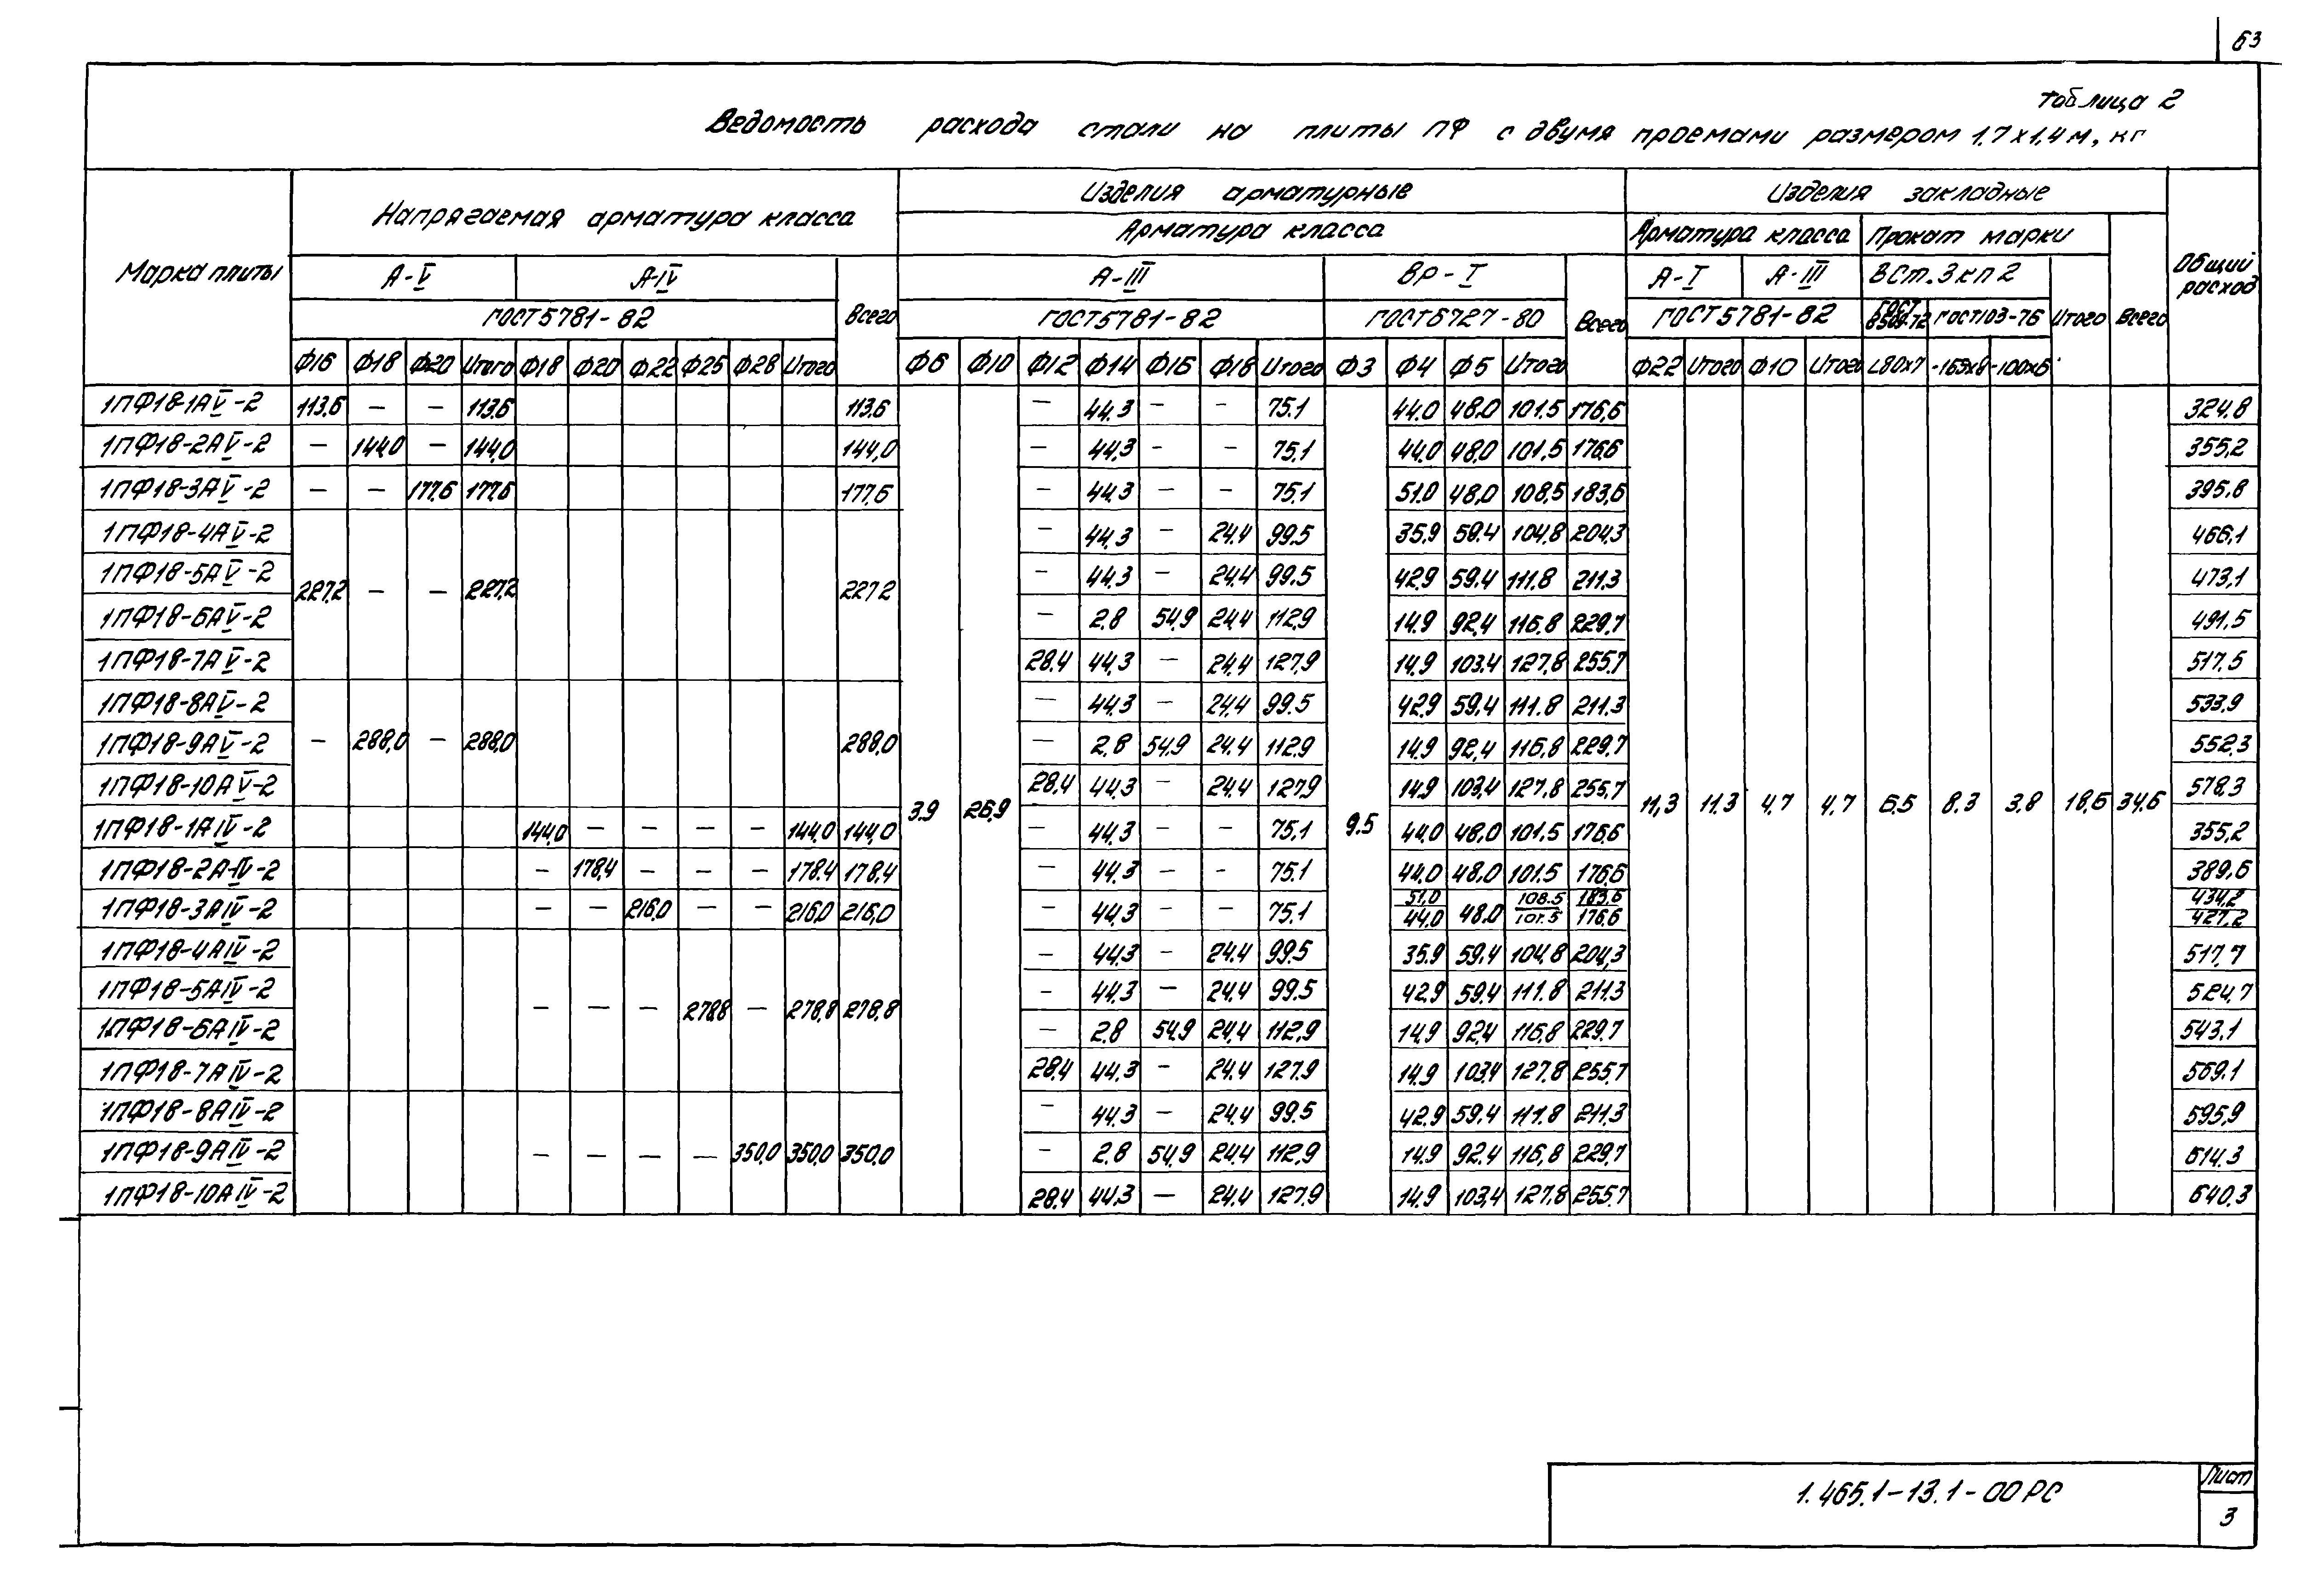 63
Таблица 2
Ведомость расхода стали на плиты ПФ с двумя проемами размером 1.7х1,4 м, кг
Марка плиты
Напрягаемая арматура класса
Изделия арматурные
Изделия закладные
Общий расход
Арматура класса
Арматура класса
Прокат марки
А-V
А-IV
Всего
А-III
Вр-I
Всего
А-I
А-III
ВСт.3кп2
Итого
Всего
ГОСТ5781-82
ГОСТ5781-82
ГОСТ6727-80
ГОСТ5781-82
ГОСТ 8509-72
ГОСТ103-76
Ф16 Ф18 Ф20 Итого Ф18 Ф20 Ф22 Ф25 Ф28 Итого Ф6 Ф10 Ф12 Ф14 Ф16 Ф18 Итого Ф3 Ф4 Ф5 Итого Ф22 Итого Ф10 Итого L80х7 -165х8 -100х6
1ПФ18-1АV-2 113.6 — — 113.6 113.6 — 44.3 — — 75.1 44.0 48.0 101.5 176,6 324,8
1ПФ18-2АV-2 — 144.0 — 144.0 144,0 — 44.3 — — 75.1 44.0 48.0 101,5 176.6 355,2
1ПФ18-3АV-2 — — 177.6 177.6 177.6 — 44.3 — — 75.1 51.0 48.0 108,5 183.6 395.8
1ПФ18-4АV-2 — 44,3 — 24.4 99.5 35.9 59.4 104,8 204.3 466,1
1ПФ18-5АV-2 227.2 — — 227.2 227.2 — 44.3 — 24.4 99.5 42.9 59.4 111.8 211.3 473,1
1ПФ18-6АV-2 — 2.8 54.9 24.4 112.9 14.9 92.4 116.8 229,7 491.5
1ПФ18-7АV-2 28.4 44,3 — 24.4 127.9 14.9 103.4 127,8 255.7 517.5
1ПФ18-8АV-2 — 44.3 — 24.4 99.5 42.9 59,4 111.8 211.3 533.9
1ПФ18-9АV-2 — 288,0 — 288,0 288,0 — 2.8 54.9 24.4 112.9 14.9 92,4 116,8 229.7 552.3
1ПФ18-10АV-2 28.4 44.3 — 24.4 127.9 14.9 103,4 127.8 255.7 578.3
3.9 26.9 9.5 11,3 11.3 4.7 4.7 6.5 8.3 3.8 18.6 34.6
1ПФ18-1АIV-2 144.0 — — — — 144.0 144,0 — 44.3 — — 75.1 44.0 48.0 101.5 176.6 355,2
1ПФ18-2А-IV-2 — 178.4 — — — 178.4 178.4 — 44.3 — - 75.1 44.0 48.0 101.5 176,6 389,6
1ПФ18-3АIV-2 — — 216,0 — — 216.0 216,0 — 44.3 — - 75.1 51,0/44.0 48.0 108.5/101.5 183.6/176.6 434,2/427,2
1ПФ18-4АIV-2 — 44.3 — 24.4 99.5 35.9 59.4 104,8 204,3 517.7
1ПФ18-5АIV-2 — — — 278.8 — 278,8 278,8 - 44.3 — 24.4 99.5 42.9 59.4 111.8 211.3 524.7
1ПФ18-6АIV-2 — 2.8 54.9 24.4 112,9 14.9 92.4 116,8 229.7 543.1
1ПФ18-7АIV-2 28.4 44.3 — 24.4 127.9 14.9 103.4 127.8 255.7 569.1
1ПФ18-8АIV-2 — 44.3 — 24.4 99.5 42.9 59.4 111.8 211.3 595,9
1ПФ18-9АIV-2 — — — — 350.0 350.0 350.0 — 2.8 54.9 24.4 112,9 14.9 92.4 116,8 229.7 614.3
1ПФ18-10АIV-2 28.4 44.3 — 24.4 127.9 14.9 103,4 127.8 255.7 640.3
1.465.1-13.1-00РС
Лист
3